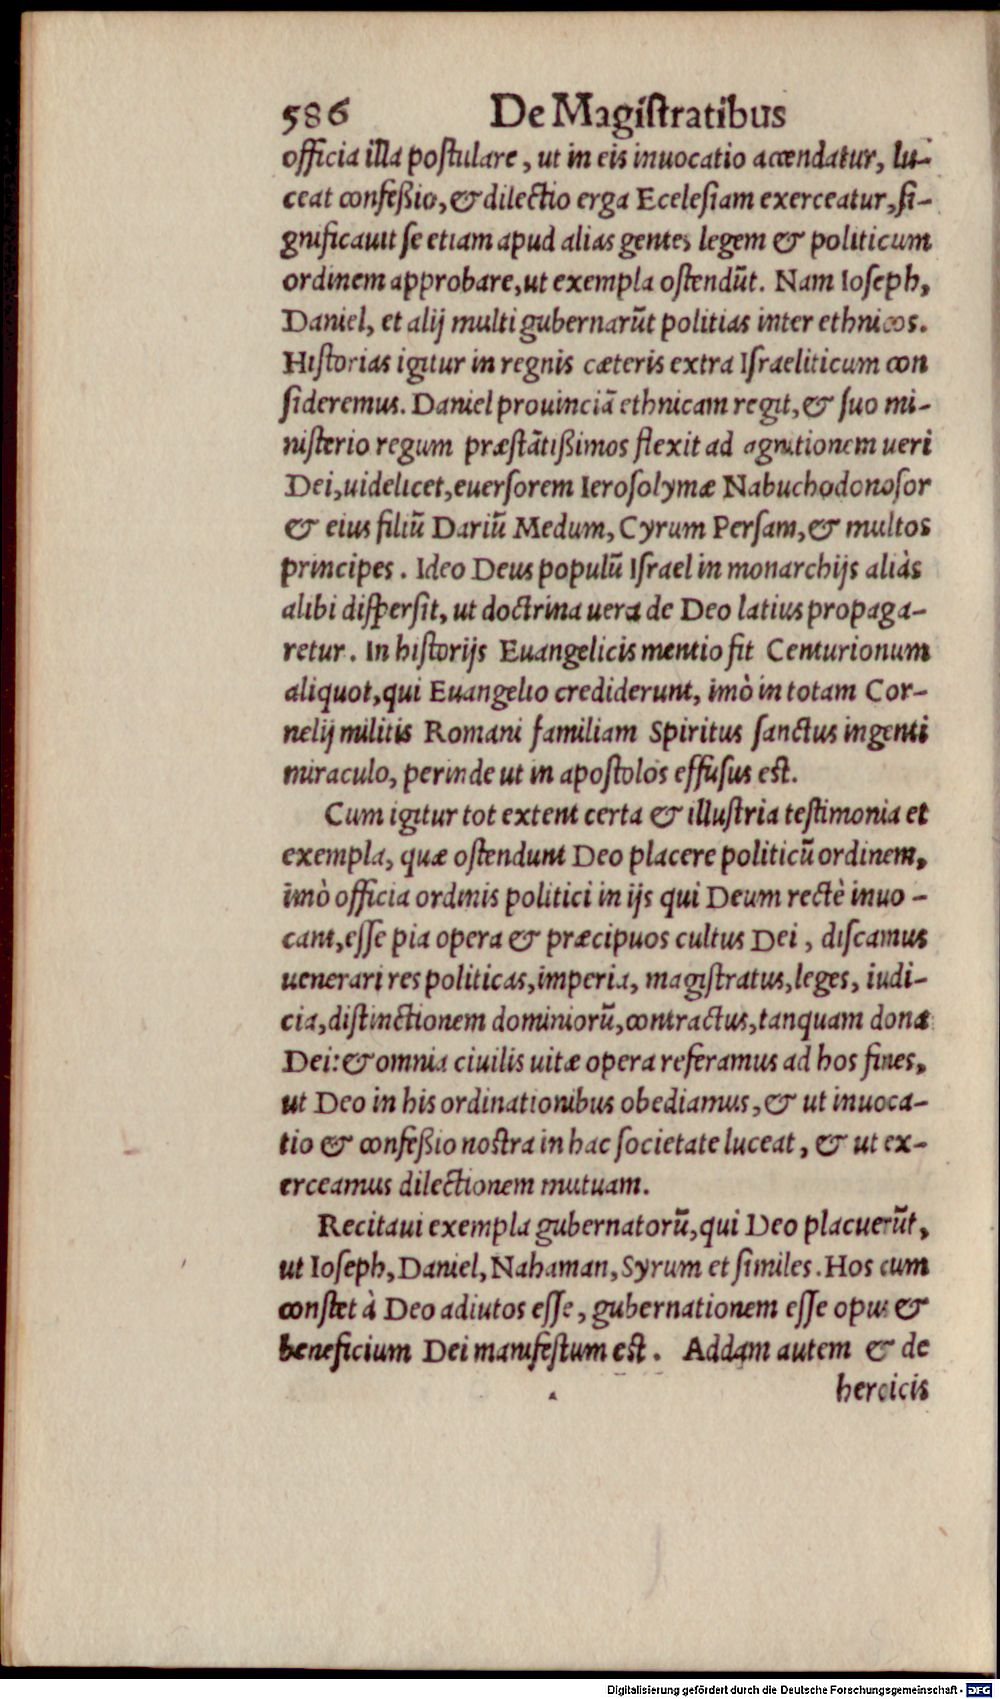 586 De Magiſtratibus
officia illa poſtulare, ut in eis inuocatio accendatur, lu-
ceat confeßio, & dilectio erga Eceleſiam exerceatur, ſi-
gnificauit ſe etiam apud alias gentes legem & politicum
ordinem approbare, ut exempla oſtendūt. Nam Ioſeph,
Daniel, et alij multi gubernarūt politias inter ethnicos.
Hiſtorias igitur in regnis cæteris extra Iſraeliticum con
ſideremus. Daniel prouinciā ethnicam regit, & ſuo mi-
niſterio regum præſtātißimos flexit ad agnitionem ueri
Dei, uidelicet, euerſorem Ieroſolymæ Nabuchodonoſor
& eius filiū Dariū Medum, Cyrum Perſam, & multos
principes. Ideo Deus populū Iſrael in monarchijs aliàs
alibi diſperſit, ut doctrina uera de Deo latius propaga-
retur. In hiſtorijs Euangelicis mentio fit Centurionum
aliquot, qui Euangelio crediderunt, imò in totam Cor-
nelij militis Romani familiam Spiritus ſanctus ingenti
miraculo, perinde ut in apoſtolos effuſus eſt.
Cum igitur tot extent certa & illuſtria teſtimonia et
exempla, quæ oſtendunt Deo placere politicū ordinem,
imò officia ordinis politici in ijs qui Deum rectè inuo-
cant, eſſe pia opera & præcipuos cultus Dei, diſcamus
uenerari res politicas, imperia, magiſtratus, leges, iudi-
cia, diſtinctionem dominiorū, contractus, tanquam dona
Dei: & omnia ciuilis uitæ opera referamus ad hos fines,
ut Deo in his ordinationibus obediamus, & ut inuoca-
tio & confeßio noſtra in hac ſocietate luceat, & ut ex-
erceamus dilectionem mutuam.
Recitaui exempla gubernatorū, qui Deo placuerūt,
ut Ioſeph, Daniel, Nahaman, Syrum et ſimiles. Hos cum
conſtet à Deo adiutos eſſe, gubernationem eſſe opus &
beneficium Dei manifeſtum eſt. Addam autem & de
heroicis
Digitalisierung gefördert durch die Deutsche Forschungsgemeinschaft - DFG